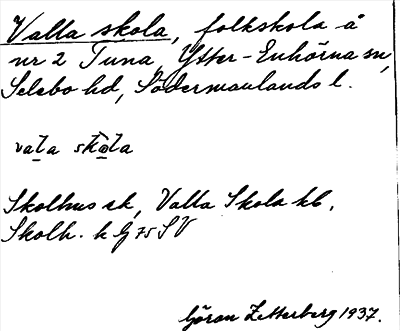 Valla skola, folkskola å
nr 2 Tuna, Ytter-Enhörna sn,
Selebo hd, Södermanlands l.
vala skola
Skolhus ek, Valla Skola kb.
Skolh. h G 75 SV
Göran Zetterberg 1937.